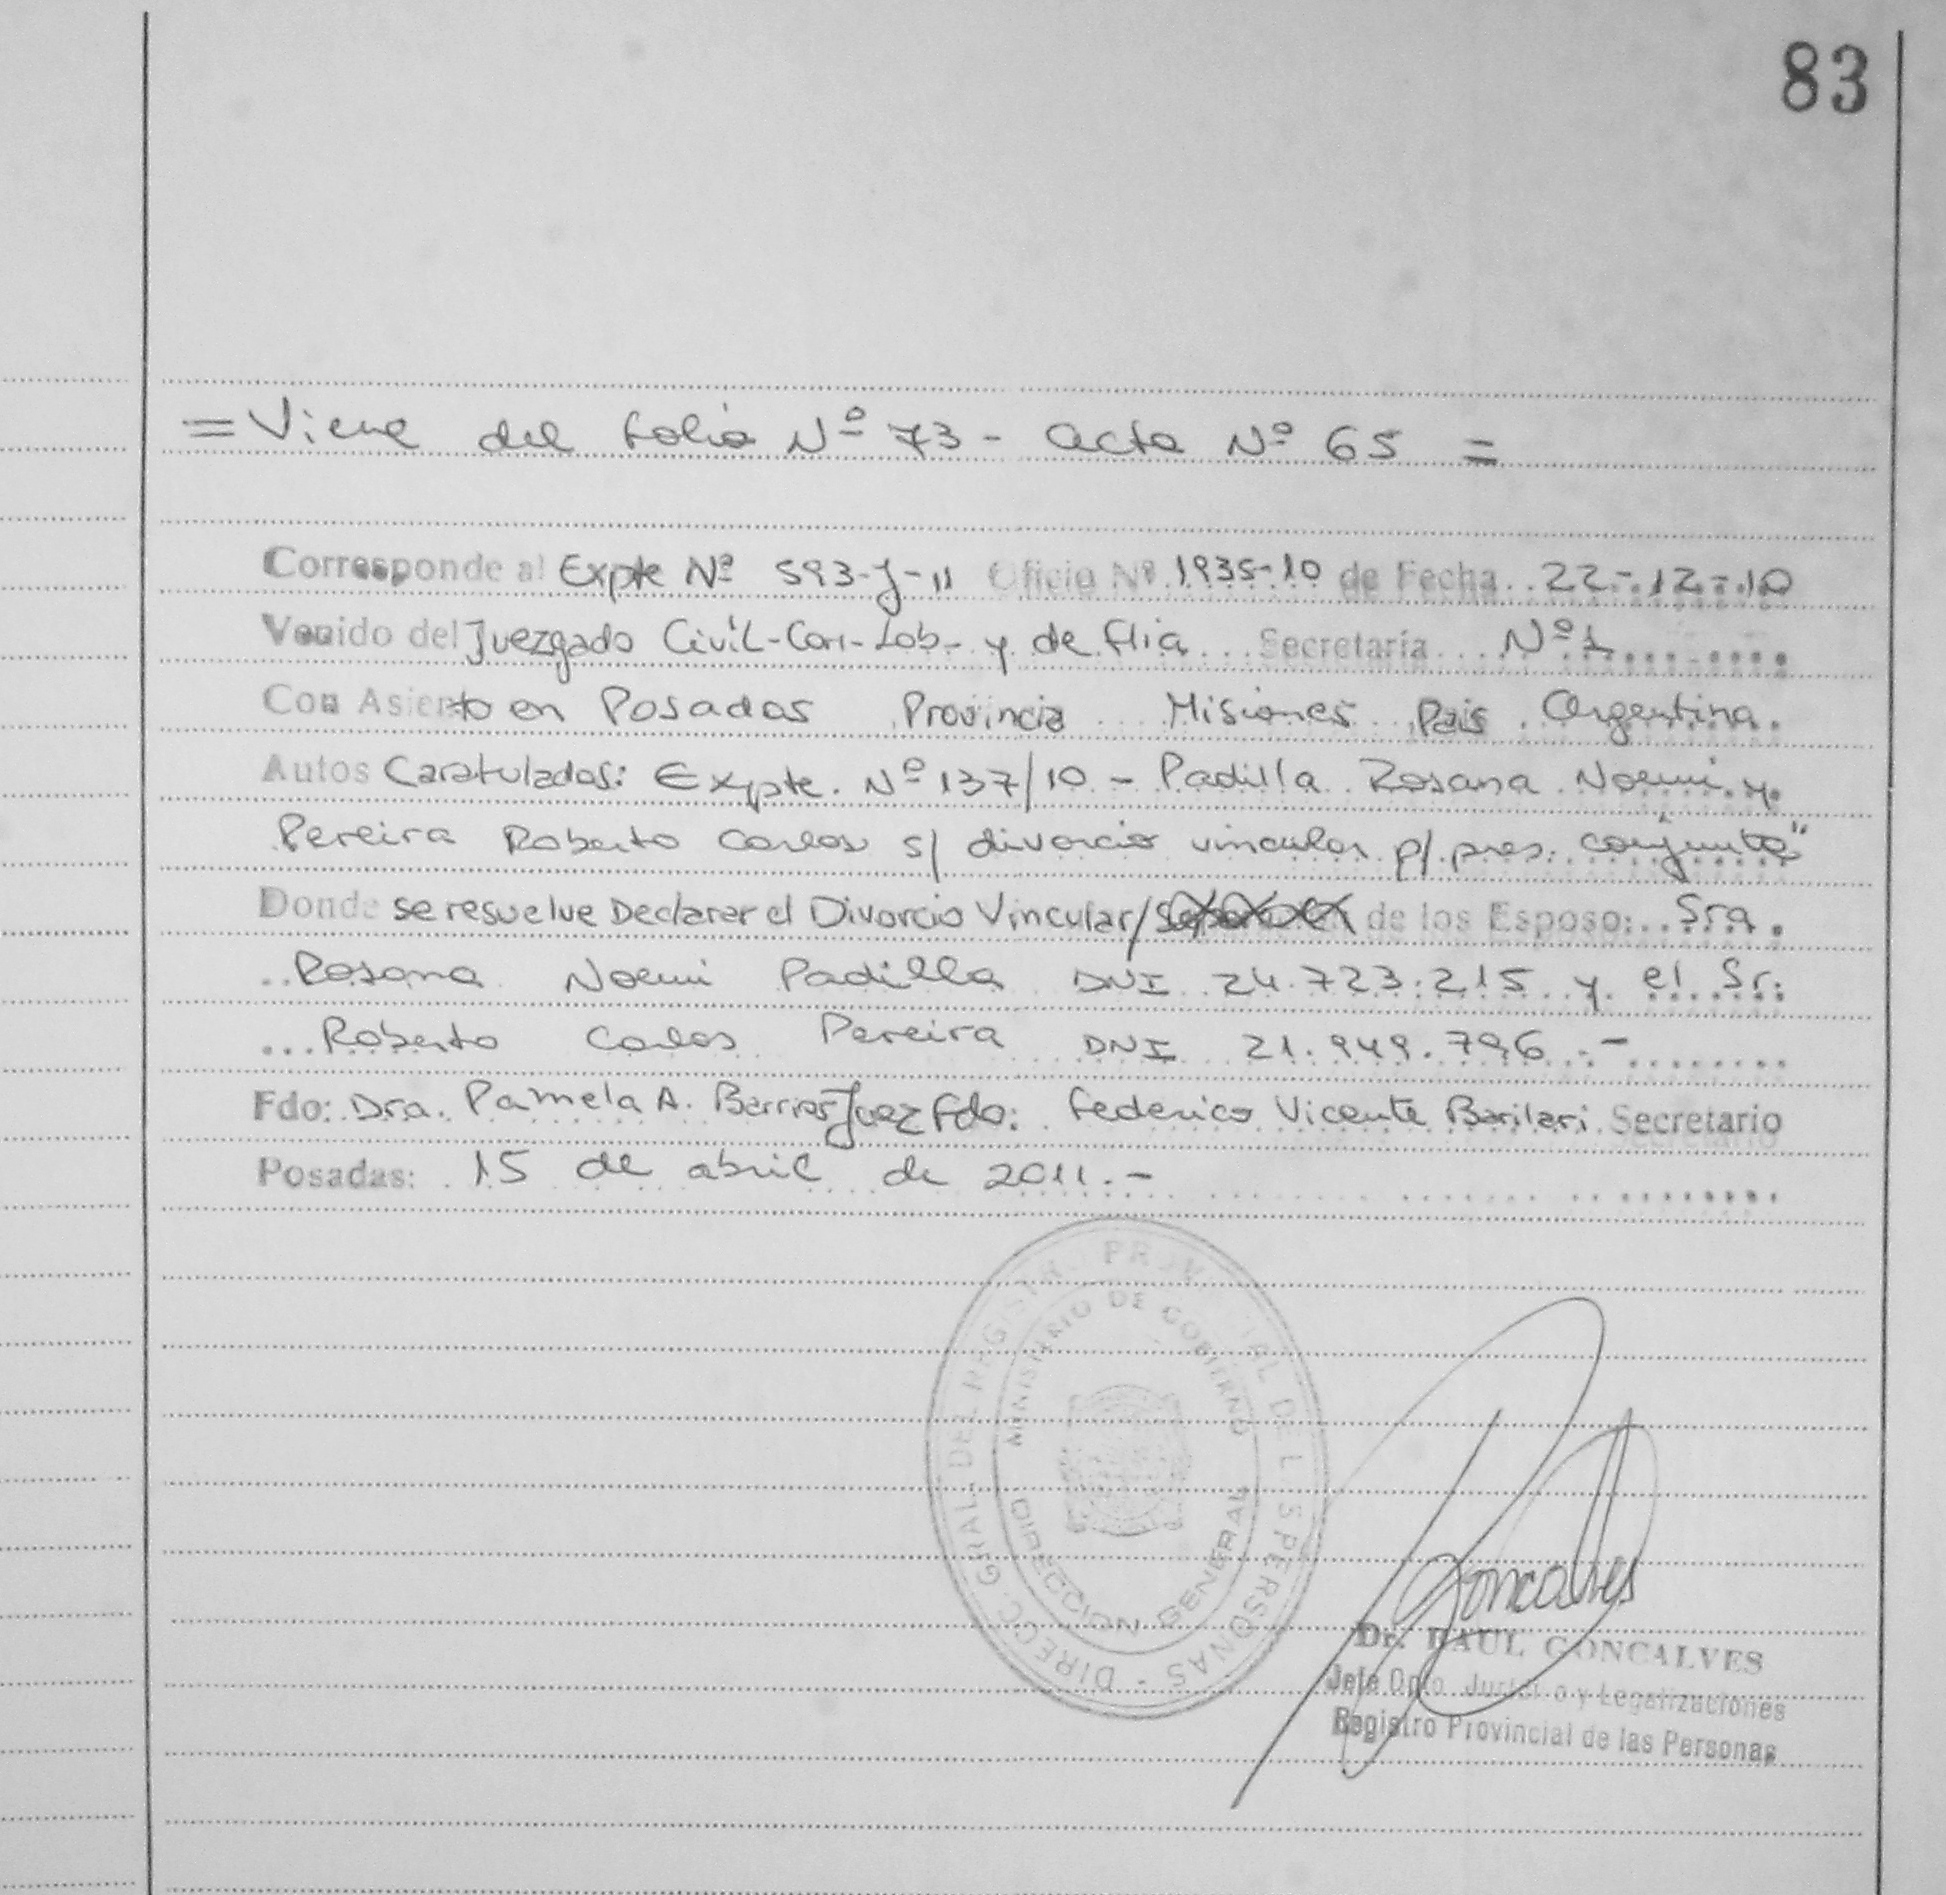 83
= Viene del folio Nº 73 - acta Nº 65 =
Corresponde al Expte Nº 593-J-11 Oficio Nº 1935-10 de Fecha 22-12-10
Venido del Juzgado Civil-Com-Lab- y de flia Secretaría Nº 1
Con Asiento en Posadas Provincia Misiones Pais Argentina.
Autos Caratulados: Expte. Nº 137/10 - Padilla Rosana Noemi y
Pereira Roberto Carlos s/ divorcio vincular p/ pres. conjunta"
Donde se resuelve Declarar el Divorcio Vincular/ de los Esposo: Sra.
Rosana Noemi Padilla DNI 24.723.215 y el Sr.
Roberto Carlos Pereira DNI 21.949.796.-
Fdo: Dra. Pamela A. Barrios Juez Fdo: Federico Vicente Barilari Secretario
Posadas: 15 de abril de 2011.-
DIRECC. GRAL. DEL REGISTR. PROVINCIAL DE L S PERSONAS -
MINISTERIO DE GOBIERNO
DIRECCION GENERAL
Goncalves
Dr. RAUL GONCALVES
Jefe Dpto. Jurídico y Legalizaciones
Registro Provincial de las Personas